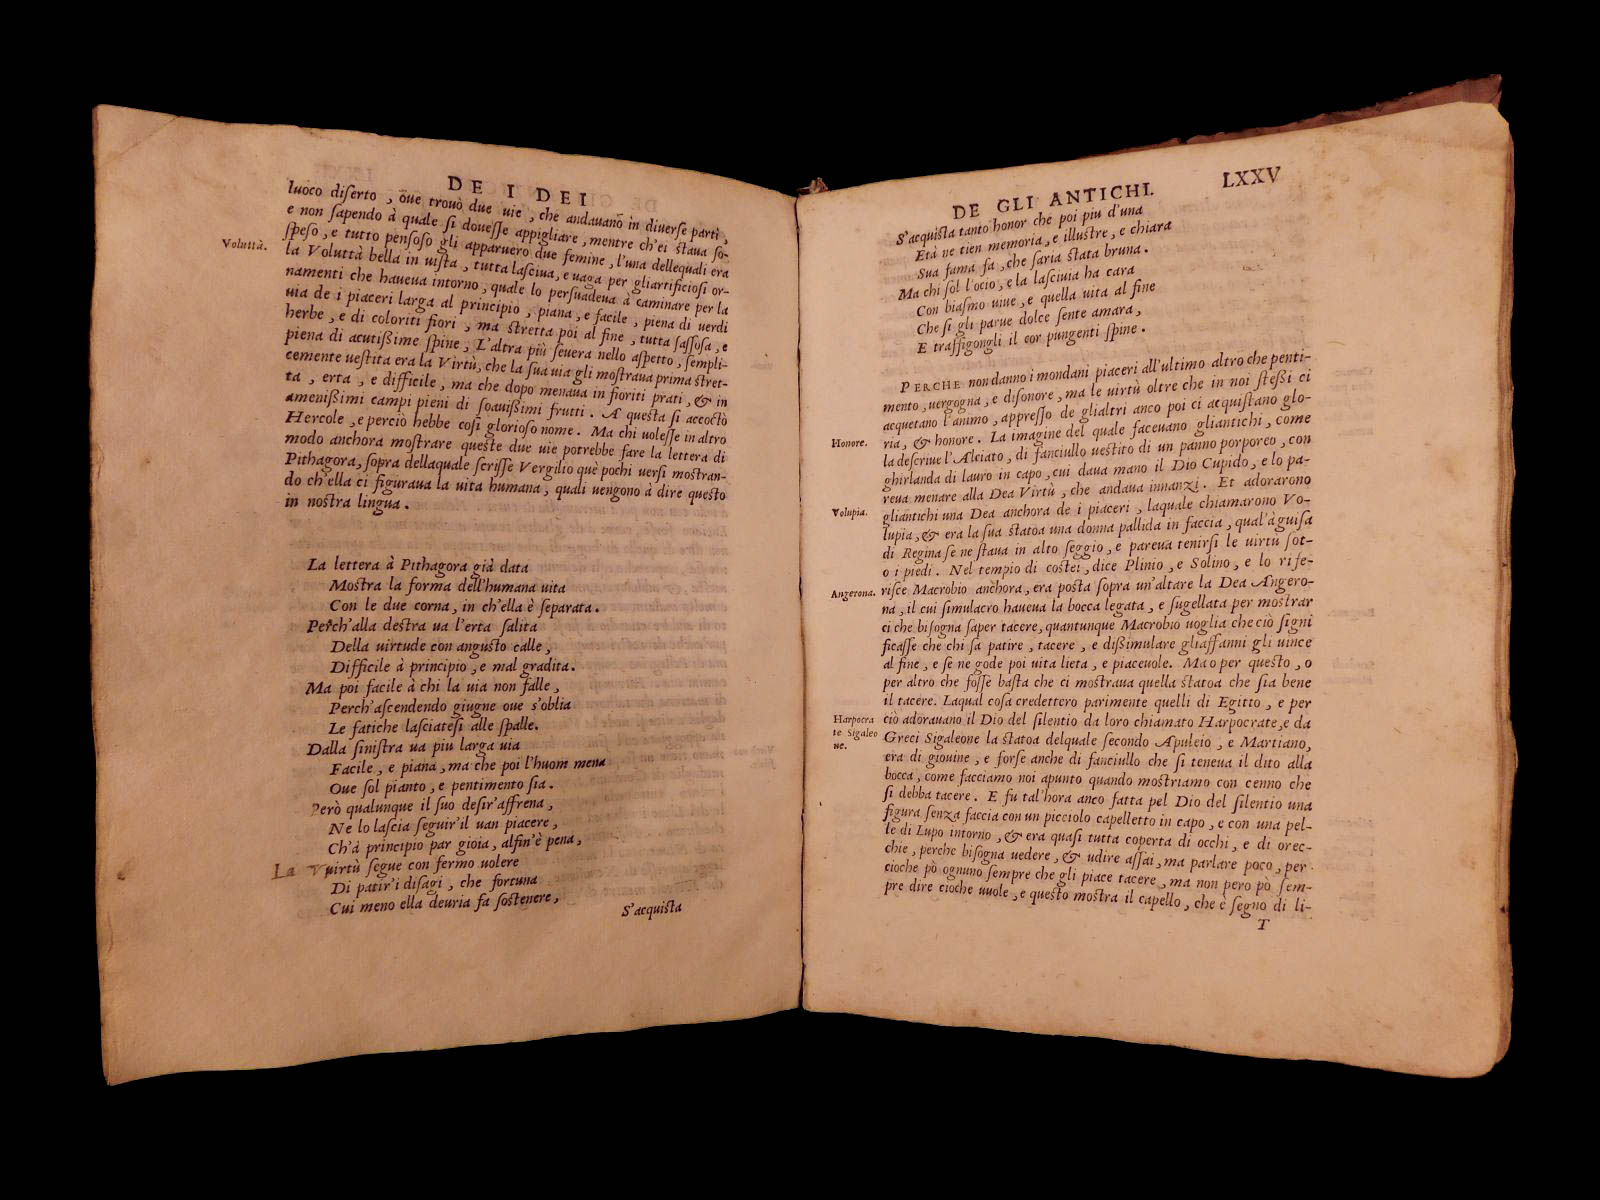 DE I DEI
luoco diſerto , oue trouò due uie , che andauano in diuerse parti ,
e non ſapendo à quale ſi doueſſe appigliare , mentre ch'ei ſtaua ſo-
ſpeſo , e tutto penſoſo gli apparuero due femine , l'una dellequali era
Voluttà.
la Voluttà bella in uiſta , tutta laſciua, e uaga per gliartificioſi or-
namenti che haueua intorno, quale lo perſuadeua à caminare per la
uia de i piaceri larga al principio , piana , e facile , piena di uerdi
herbe , e di coloriti fiori , ma ſtretta poi al fine , tutta ſaſſoſa , e
piena di acutiſſime ſpine , L'altra più ſeuera nello aſpetto , ſempli-
cemente ueſtita era la Virtù, che la ſua uia gli moſtraua prima ſtret-
ta , erta , e difficile , ma che dopo menaua in fioriti prati , & in
ameniſſimi campi pieni di ſoauiſſimi frutti . A queſta ſi accoſtò
Hercole , e perciò hebbe coſi glorioſo nome . Ma chi uoleſſe in altro
modo anchora moſtrare queſte due uie potrebbe fare la lettera di
Pithagora, ſopra dellaquale ſcriſſe Vergilio què pochi uerſi moſtran-
do ch'ella ci figuraua la uita humana , quali uengono à dire queſto
in noſtra lingua .
La lettera à Pithagora già data
Moſtra la forma dell'humana uita
Con le due corna, in ch'ella è ſeparata .
Perch'alla deſtra ua l'erta ſalita
Della uirtude con anguſto calle ,
Difficile à principio , e mal gradita .
Ma poi facile à chi la uia non falle ,
Perch'aſcendendo giugne oue s'oblia
Le fatiche laſciateſi alle ſpalle.
Dalla ſiniſtra ua piu larga uia
Facile , e piana , ma che poi l'huom mena
Oue ſol pianto , e pentimento ſia .
Però qualunque il ſuo deſir'affrena ,
Ne lo laſcia ſeguir'il uan piacere ,
Ch'à principio par gioia, alfin'è pena ,
La Vuirtù ſegue con fermo uolere
Di patir'i diſagi , che fortuna
Cui meno ella deuria fa ſoſtenere ,
S'acquiſta
DE GLI ANTICHI. LXXV
S'acquiſta tanto honor che poi piu d'una
Età ne tien memoria , e illuſtre , e chiara
Sua fama fa , che ſaria ſtata bruna .
Ma chi ſol l'ocio , e la laſciuia ha cara
Con biaſmo uiue , e quella uita al fine
Che ſi gli parue dolce ſente amara ,
E traffigongli il cor pungenti ſpine .
PERCHE non danno i mondani piaceri all'ultimo altro che penti-
mento , uergogna , e diſonore , ma le uirtù oltre che in noi ſteſſi ci
acquetano l'animo , appreſſo de glialtri anco poi ci acquiſtano glo-
Honore.
ria , & honore . La imagine del quale faceuano gliantichi , come
la deſcriue l'Alciato , di fanciullo ueſtito di un panno porporeo , con
ghirlanda di lauro in capo , cui daua mano il Dio Cupido , e lo pa-
reua menare alla Dea Virtù , che andaua innanzi . Et adorarono
Volupia.
gliantichi una Dea anchora de i piaceri , laquale chiamarono Vo-
lupia , & era la ſua ſtatoa una donna pallida in faccia , qual'à guiſa
di Regina ſe ne ſtaua in alto ſeggio , e pareua tenirſi le uirtù ſot-
o i piedi . Nel tempio di coſtei , dice Plinio , e Solino , e lo rife-
Angerona.
riſce Macrobio anchora , era poſta ſopra un'altare la Dea Angero-
na , il cui ſimulacro haueua la bocca legata , e ſugellata per moſtrar
ci che biſogna ſaper tacere, quantunque Macrobio uoglia che ciò ſigni
ficaſſe che chi ſa patire , tacere , e diſſimulare gliaffanni gli uince
al fine , e ſe ne gode poi uita lieta , e piaceuole . Ma o per queſto , o
per altro che foſſe baſta che ci moſtraua quella ſtatoa che ſia bene
il tacere. Laqual coſa credettero parimente quelli di Egitto , e per
Harpocra
te Sigaleo
ne.
ciò adorauano il Dio del ſilentio da loro chiamato Harpocrate , e da
Greci Sigaleone la ſtatoa delquale ſecondo Apuleio , e Martiano ,
era di giouine , e forſe anche di fanciullo che ſi teneua il dito alla
bocca , come facciamo noi apunto quando moſtriamo con cenno che
ſi debba tacere . E fu tal'hora anco fatta pel Dio del ſilentio una
figura ſenza faccia con un picciolo capelletto in capo , e con una pel-
le di Lupo intorno , & era quaſi tutta coperta di occhi , e di orec-
chie , perche biſogna uedere , & udire aſſai , ma parlare poco , per-
cioche pò ognuno ſempre che gli piace tacere , ma non pero pò ſem-
pre dire cioche uuole , e queſto moſtra il capello , che è ſegno di li-
T